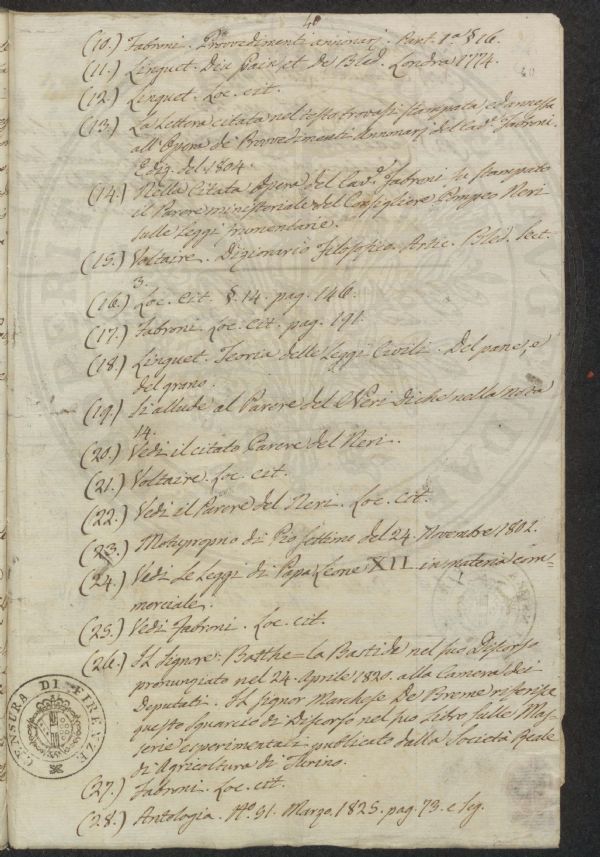 40
40
(10.) Fabroni. Provvedimenti annonarj. Part. 1.a § 16.
(11.) Linguet. Du Pain et de Bled. Londra 1774.
(12.) Linguet. Loc. cit.
(13.) La Lettera citata nel testo trovasi stampata ed annessa
all'Opera de' Provvedimenti Annonarj del Cav.e Fabroni.
Ediz. del 1804.
(14.) Nella Citata Opera del Cav.e Fabroni fu stampato
il Parere ministeriale del Consigliere Pompeo Neri
sulle Leggi frumentarie.
(15.) Voltaire. Dizionario Filosofico. Artic. Bled. Sect.
3.
(16.) Loc. Cit. §. 14. pag. 146.
(17.) Fabroni. Loc. Cit. pag. 191.
(18.) Linguet. Teoria delle Leggi Civili. Del pane, e
del grano.
(19.) Si allude al Parere del Neri di che nella nota
14.
(20.) Vedi il citato Parere del Neri.
(21.) Voltaire. Loc. cit.
(22.) Vedi il Parere del Neri. Loc. Cit.
(23.) Motuproprio di Pio Settimo del 24. Novembre 1802.
(24.) Vedi Le Leggi di Papa Leone XII in materia com-
merciale.
(25.) Vedi Fabroni. Loc. cit.
(26.) Il Signore Basthe-la Bastide nel suo Discorso
pronunziato nel 24. Aprile 1820. alla Camera dei
Deputati. Il Signor Marchese De Breme riferisce
questo squarcio di Discorso nel suo Libro sulle Mas-
serie esperimentali pubblicato dalla Società Reale
di Agricoltura di Turino.
(27.) Fabroni. Loc. cit.
(28.) Antologia. N.o 51. Marzo. 1825. pag. 73. e seg.
CENSURA DI FIRENZE